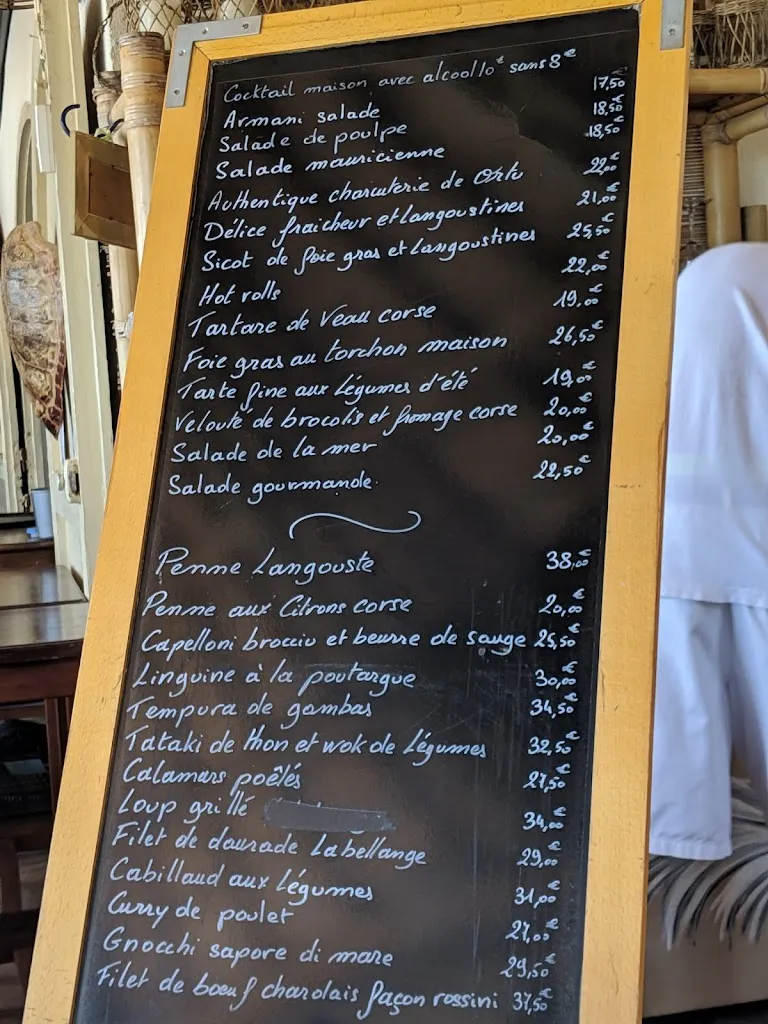 Cocktail maison avec alcool 10€ sans 8€
Armani salade 17,50€
Salade de poulpe 18,50€
Salade mauricienne 18,50€
Authentique charcuterie de Ortu 22,00€
Délice fraicheur et langoustines 21,00€
Sicot de foie gras et langoustines 25,50€
Hot rolls 22,00€
Tartare de veau corse 19,00€
Foie gras au torchon maison 26,50€
Tarte fine aux légumes d'été 19,00€
Velouté de brocolis et fromage corse 20,00€
Salade de la mer 20,00€
Salade gourmande 22,50€
Penne Langouste 38,00€
Penne aux Citrons corse 20,00€
Capelloni brocciu et beurre de sauge 25,50€
Linguine à la poutargue 30,00€
Tempura de gambas 34,50€
Tataki de thon et wok de légumes 32,50€
Calamars poêlés 27,50€
Loup grillé 34,00€
Filet de daurade Labellange 29,00€
Cabillaud aux légumes 31,00€
Curry de poulet 27,00€
Gnocchi sapore di mare 29,50€
Filet de boeuf charolais façon rossini 37,50€